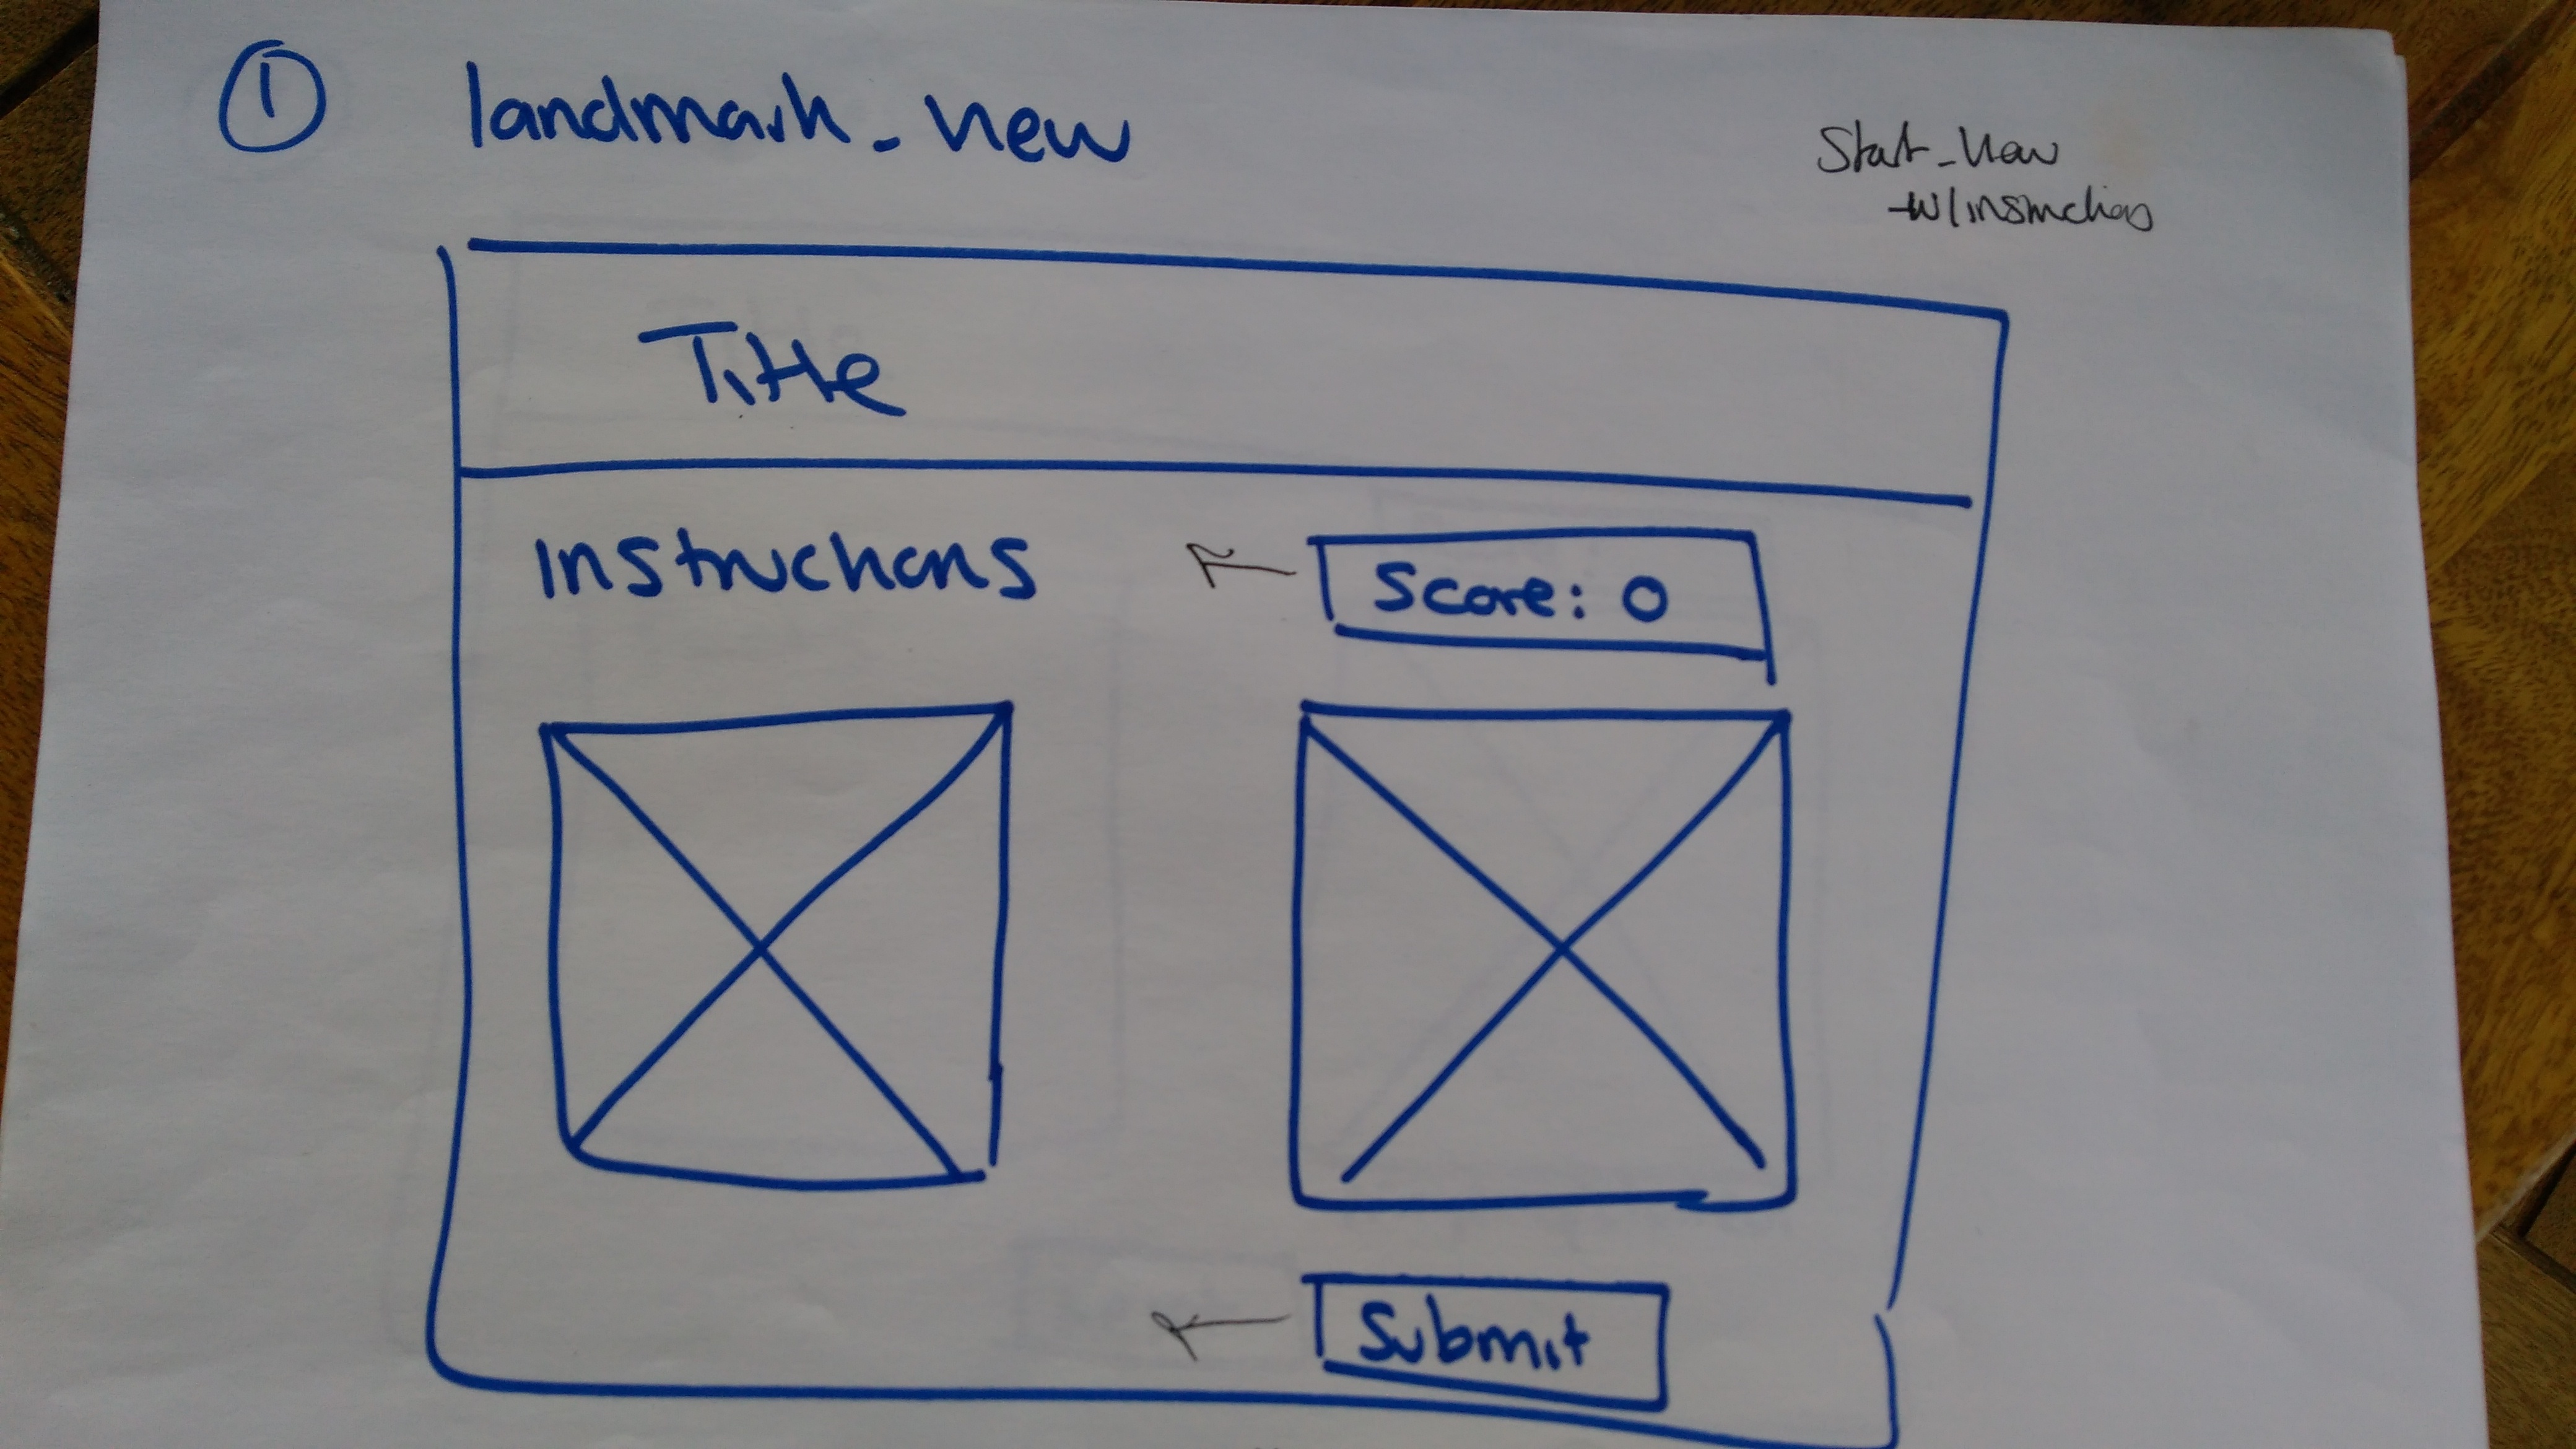 1 landmark_new
Start_New
-w/instructions
Title
instructions
Score: 0
Submit